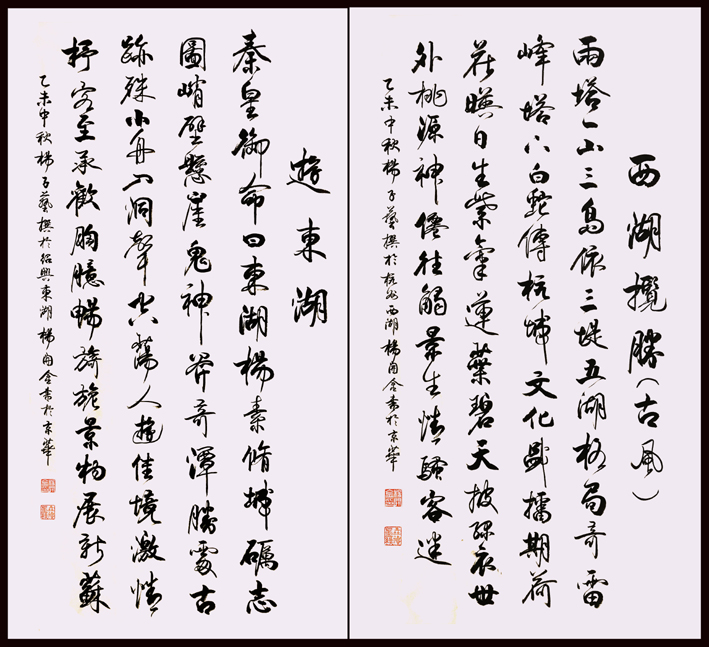 西湖攬勝(古風)
兩塔一山三島依三堤五湖格局奇雷
峰塔下白蛇傳杭城文化盛播期荷
花暎日生紫氣蓮葉碧天披緑衣世
外桃源神僊往觸景生情騷客迷
乙未中秋楊子藝撰於杭州西湖楊自含書於京華
遊東湖
秦皇御命曰東湖楊素脩城礪志
圖峭壁懸崖鬼神斧奇潭勝處古
跡殊小舟入洞聲空蕩人遊佳境激情
抒客至承歡胸臆暢旖旎景物展新蘇
乙未中秋楊子藝撰於紹興東湖楊自含書於京華